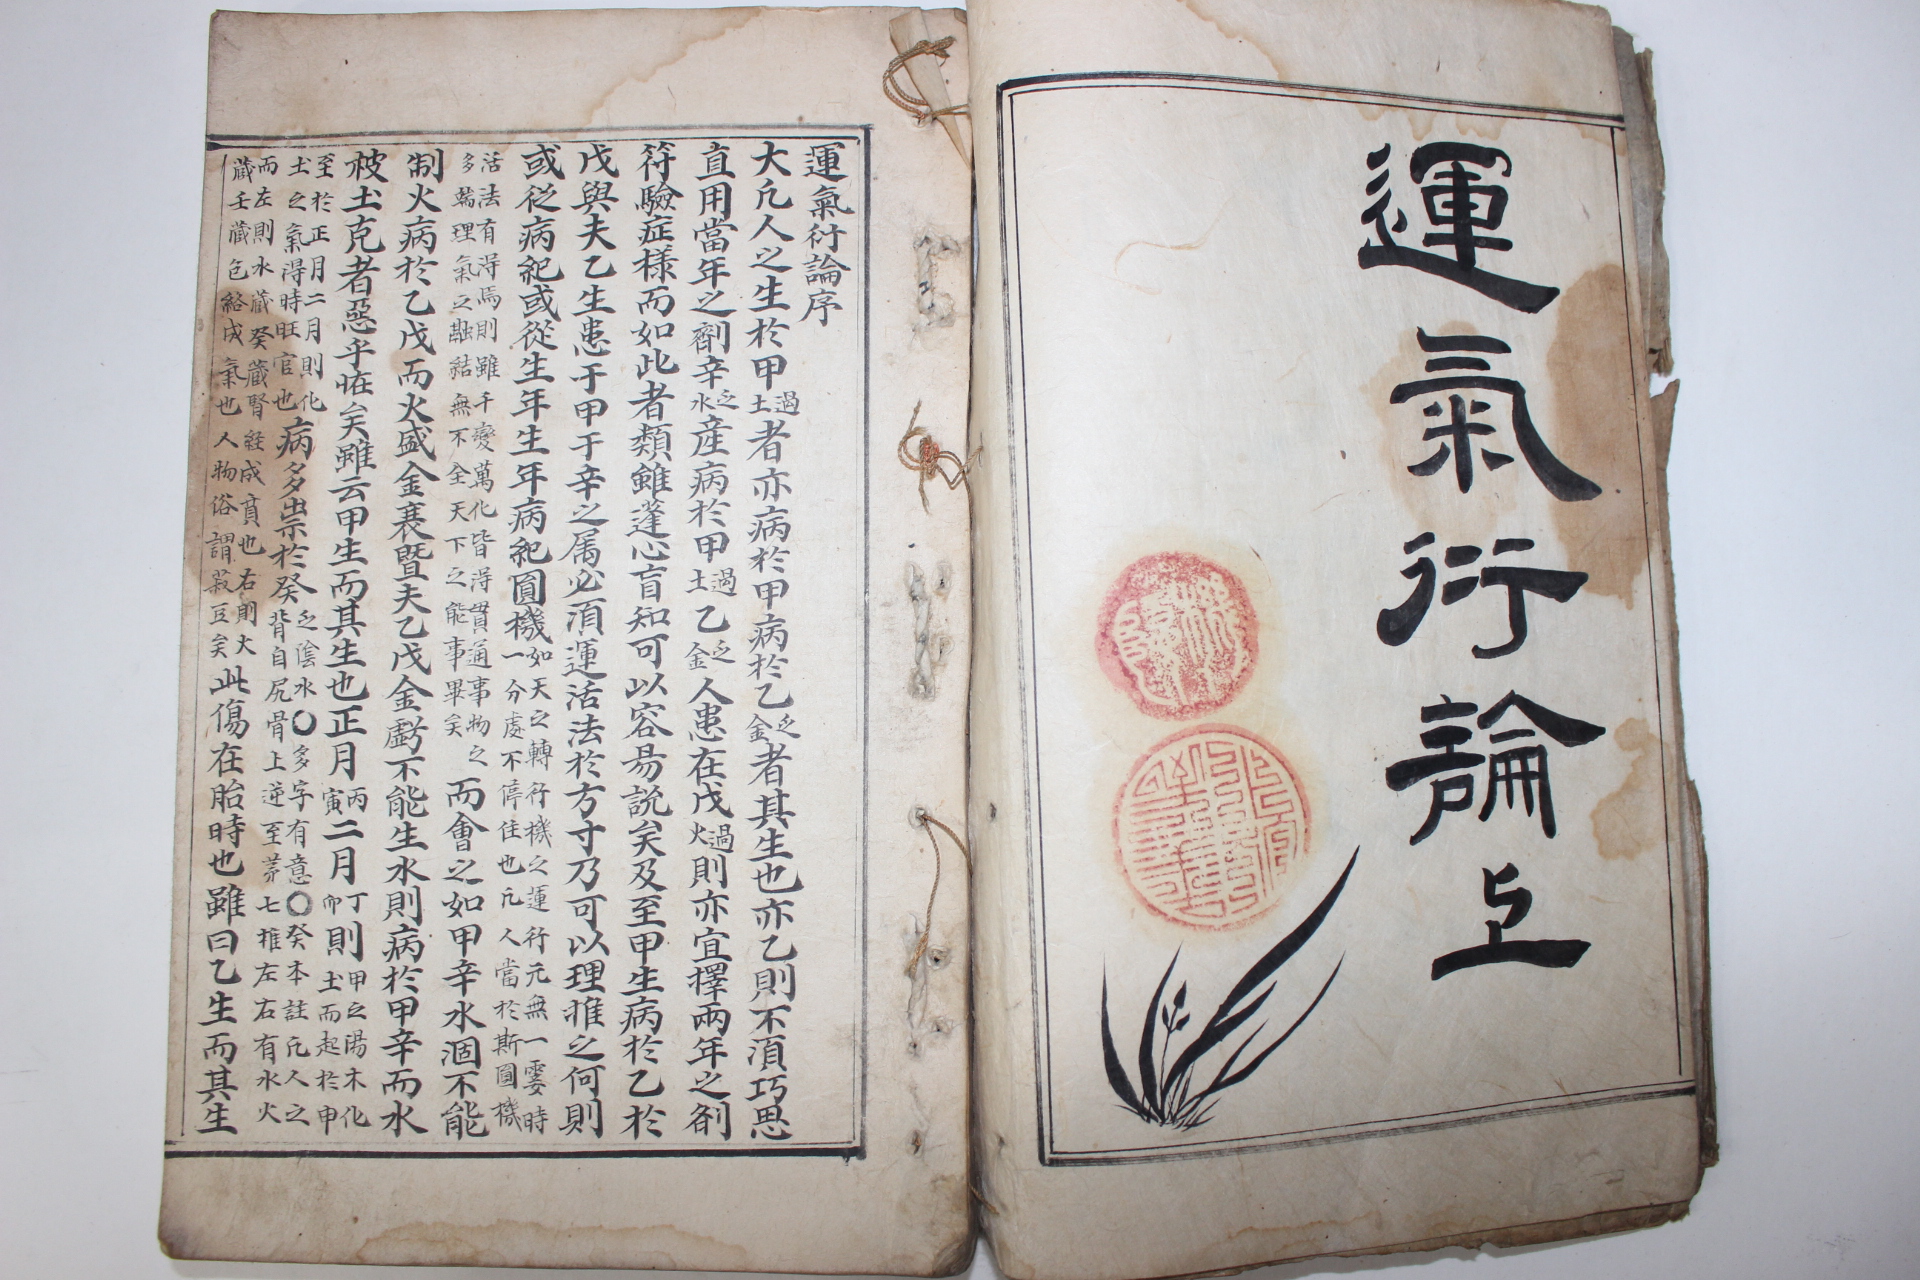 運氣衍論上
運氣衍論序
大凡人之生於甲土過者亦病於甲病於乙金乏者其生也亦乙則不須巧思
直用當年之劑辛水乏産病於甲土過乙金乏人患在戊火過則亦宜擇兩年之劑
符驗症樣而如此者類雖蓬心盲知可以容易說矣及至甲生病於乙於
戊與夫乙生患于甲于辛之属必須運活法於方寸乃可以理推之何則
或從病紀或從生年生年病紀圓機如天之轉行機之運行元無一霎時
一分處不停住也凡人當於斯圓機
活法有得焉則雖千變萬化皆得貫通事物之
多端理氣之融結無不全天下之能事畢矣而會之如甲辛水涸不能
制火病於乙戊而火盛金衰曁夫乙戊金虧不能生水則病於甲辛而水
被土克者惡乎恠矣雖云甲生而其生也正月丙寅二月丁卯則甲之陽木化
土而起於申
至於正月二月則化
土之氣得時旺官也病多祟於癸乏陰水〇多字有意〇癸本註凡人之
背自尻骨上逆至第七推左右有水火
而左則水藏癸藏腎経成賁也右則火
藏壬藏包絡成氣也人物俗謂菽豆矣此傷在胎時也雖曰乙生而其生